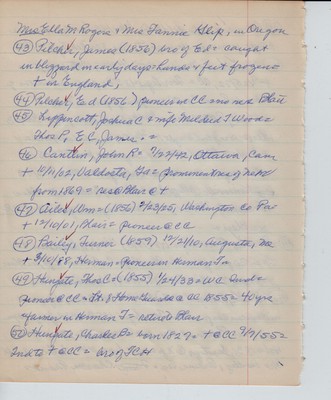 Mrs Ella M Rogers & Mrs Fannie Slip, in Oregon
(43) Pilcher, James (1856) bro of Ed = caught
in blizzard in early days = hands & feet frozen =
+ in England,
(44) Pilcher, Ed (1856) pioneer CC = no rec Blair
(45) Lippencott, Joshua C = wife Mildred I Wood =
Thos P, E C, James. =
(46) Cantlin, John R = 7/22/42, Ottawa, Can
+ 12/11/02, Valdosta, Ga = prominent res of
from 1869 = res @ Blair @ +
(47) Aites, Wm = (1856) 2/23/25, Washington Co Pa =
+ 12/10/01, Blair = pioneer @ CC
(48) Bailey, Turner (1859) 12/21/10, Augusta, Me
+ 3/10/88, Herman = pioneer in Herman T =
(49) Hungate, Thos C = (1855) 1/24/33 = WC Ind =
pioneer @ CC = 1855 = 40 yrs
farmer in Herman T = retired to Blair
(50) Hungate, Charles B = born 1827 = + @ CC 9/7/55 =
Ind to + @ CC = bro of TCH